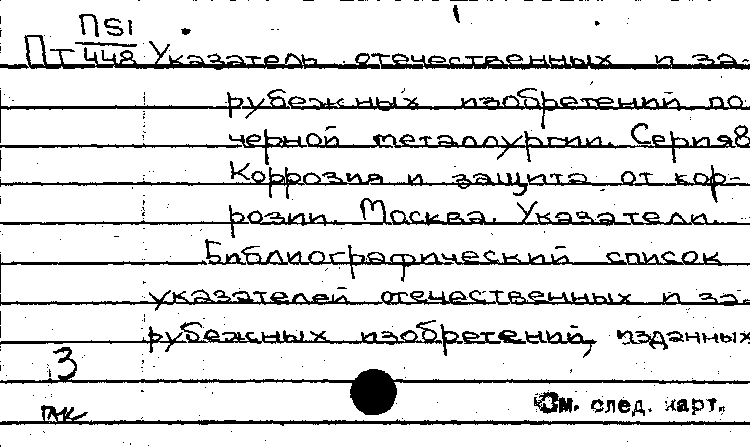 П51
Пт 448 Указатель отечественных и за-
рубежных изобретений по
черной металлургии. Серия 8
Коррозия и защита от кор-
розии. Москва. Указатели.
Библиографический список
указателей отечественных и за-
рубежных изобретений, изданных
3
См. след. карт.